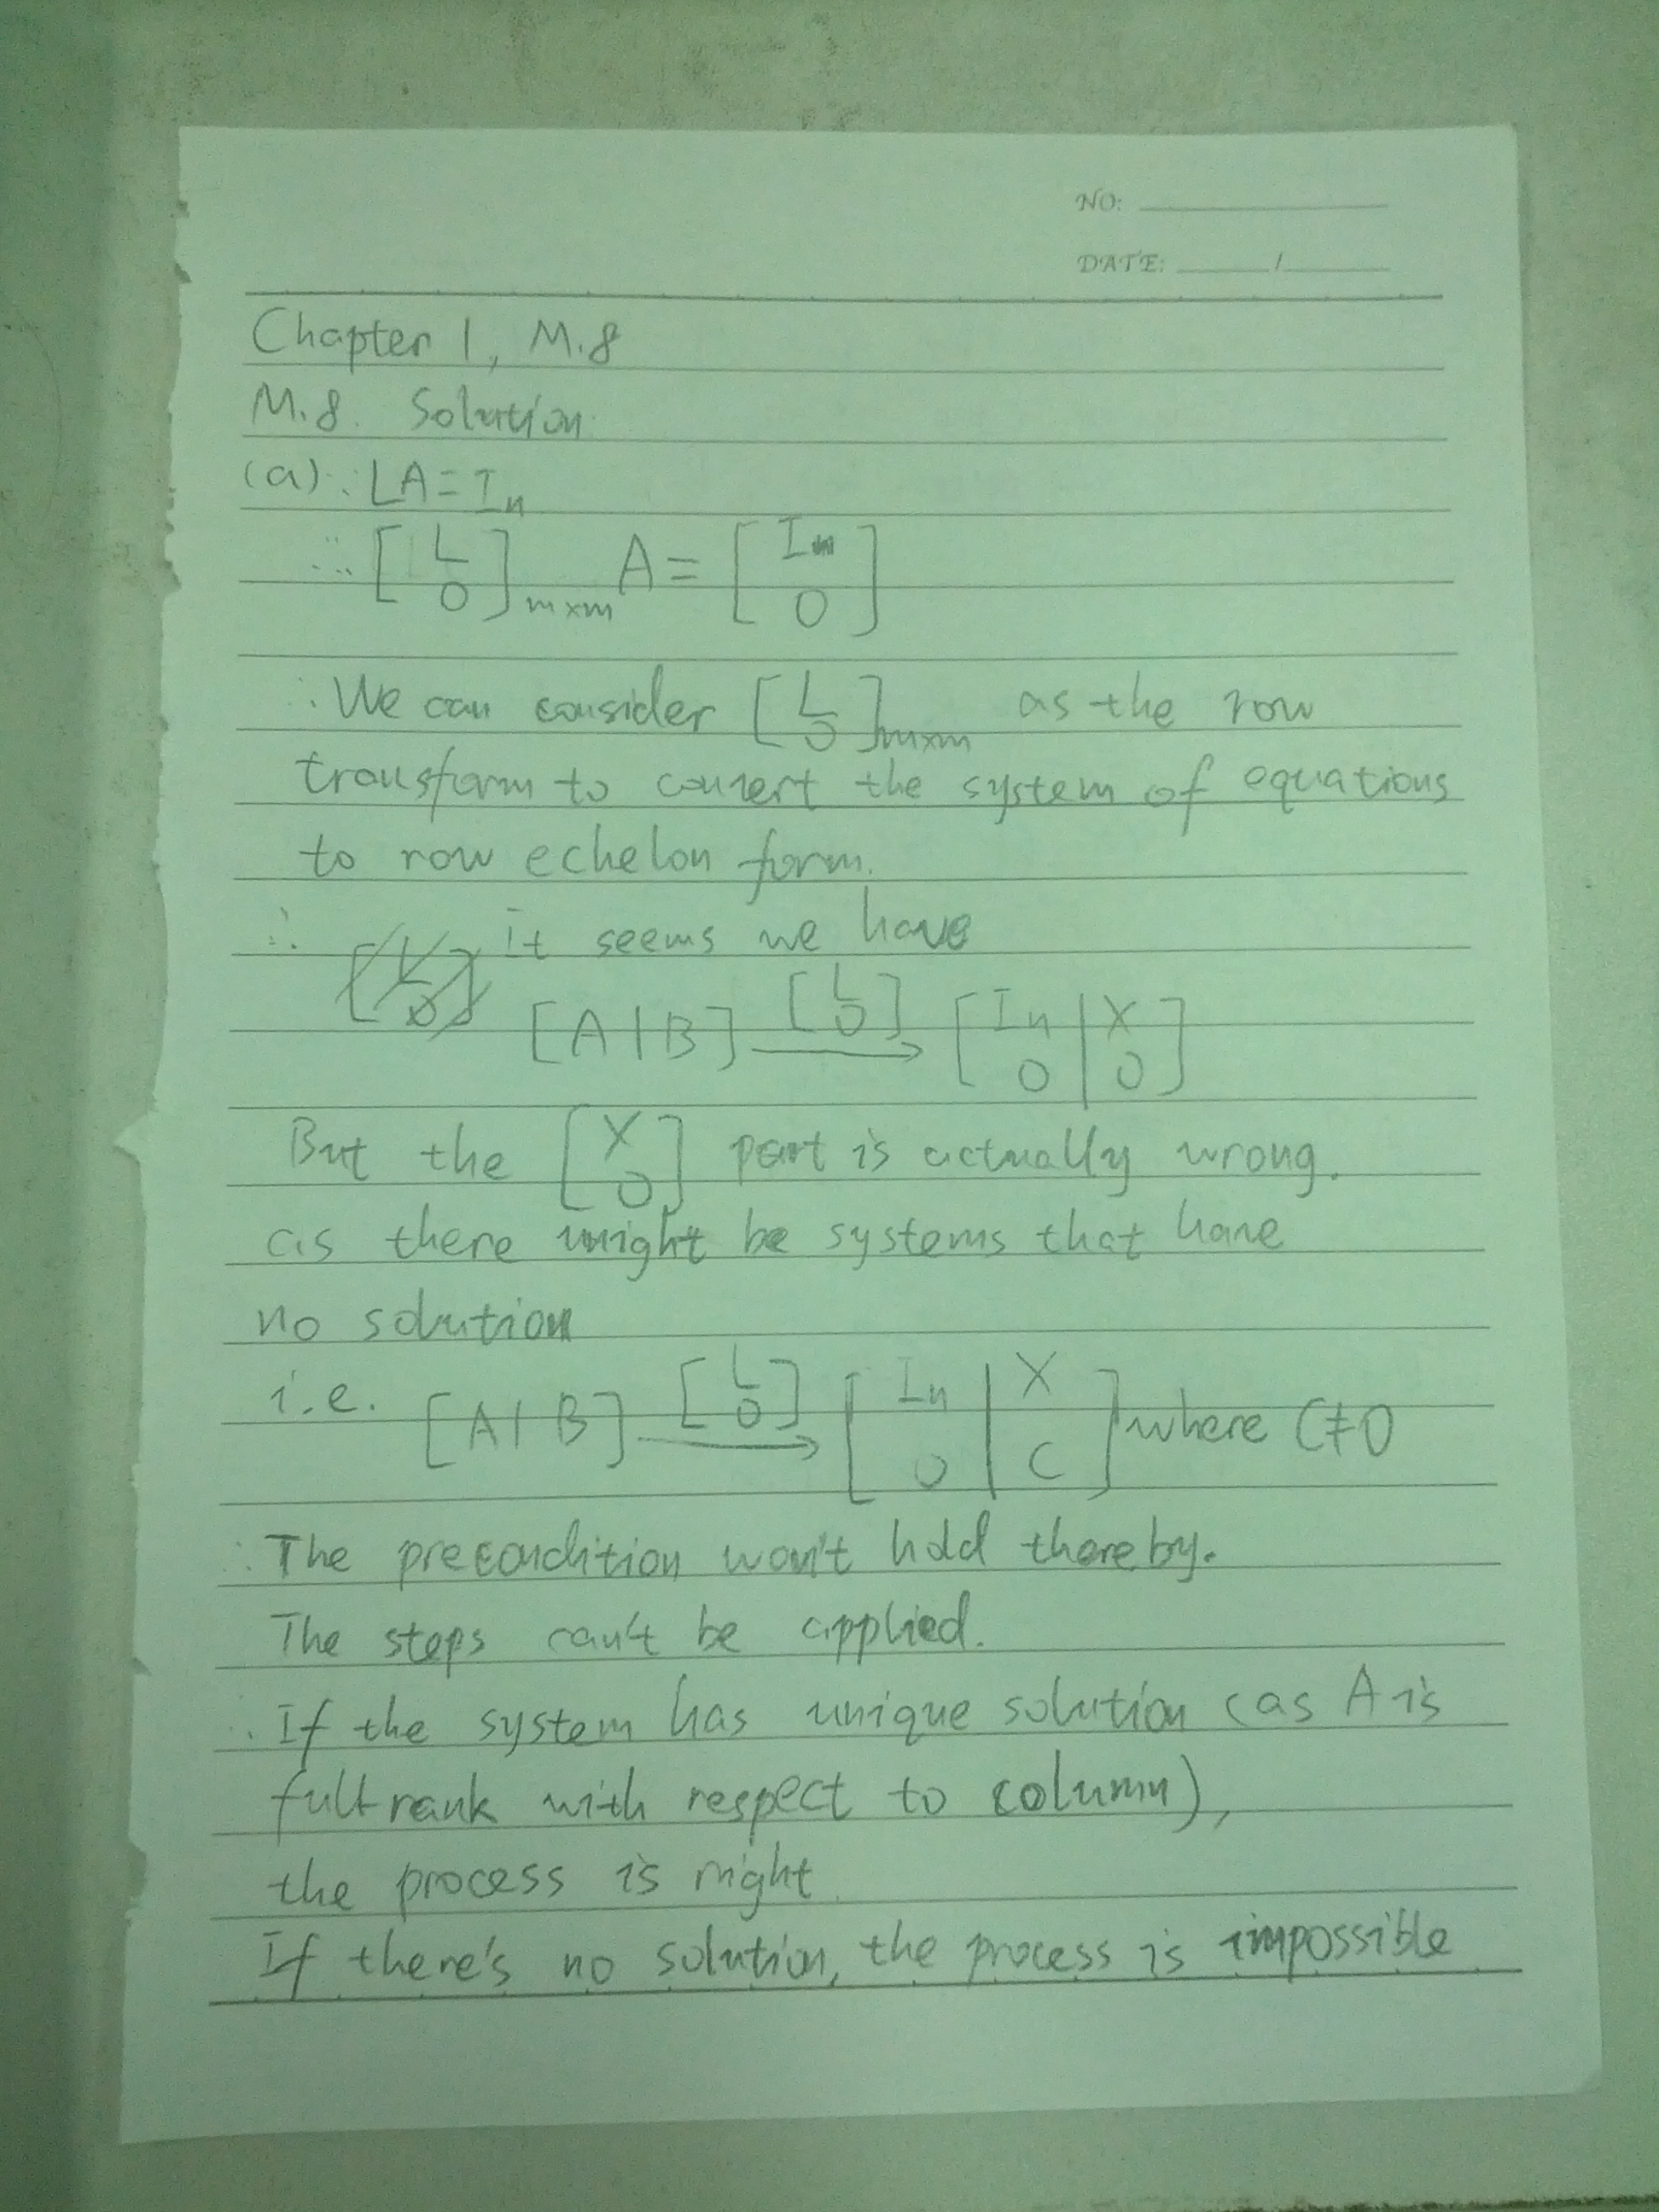 NO:
DATE: /
Chapter 1, M.8
M.8. Solution
(a) ∵ LA = In
∴ [L 0]m×m A = [In 0]
∴ We can consider [L 0]m×m as the row
transform to convert the system of equations
to row echelon form.
∴ it seems we have
[A | B] [L 0] → [In | X 0 | 0]
But the [X 0] part is actually wrong.
as there might be systems that have
no solution
i.e. [A | B] [L 0] → [In | X 0 | C] where C≠0
∴ The precondition won't hold thereby.
The steps can't be applied.
∴ If the system has unique solution (as A is
full rank with respect to column),
the process is right.
If there's no solution, the process is impossible